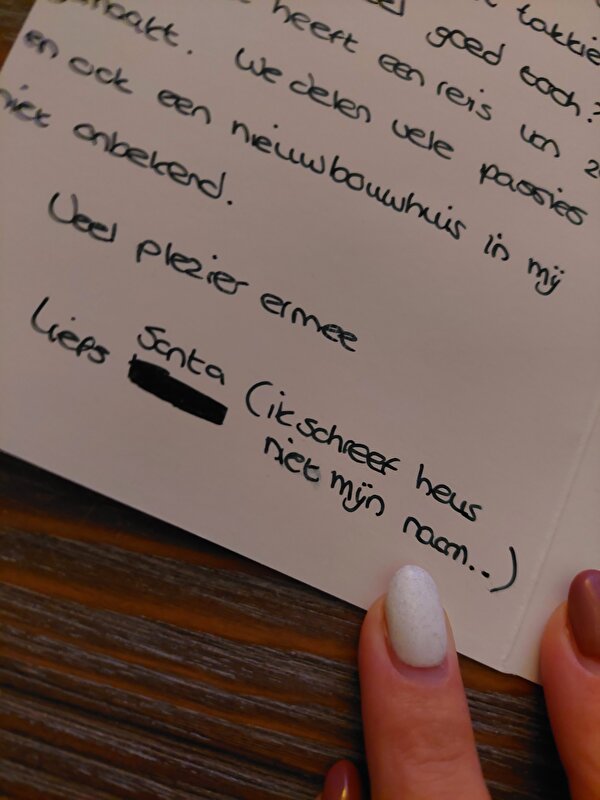 takkie
goed toch?
gemaakt. heeft een reis van
en ook we delen vele passies
een nieuwbouwhuis in mij
niet onbekend.
Veel plezier ermee
Liefs Santa (ik schreef heus
niet mijn naam..)